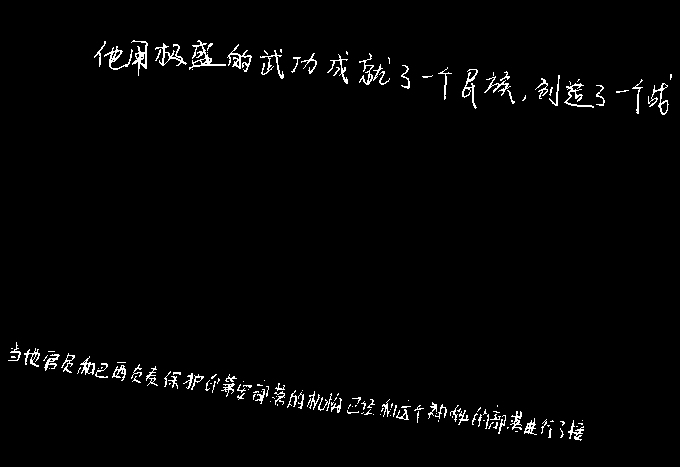 他用极盛的武功成就了一个民族，创造了一个时
当地官员和巴西负责保护印第安部落的机构已经和这个神秘的部落进行了接